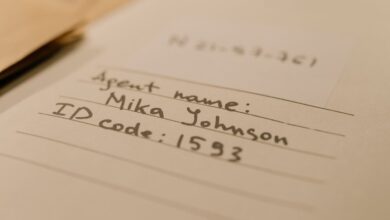 Agent name:
Mika Johnson
ID code: 1593